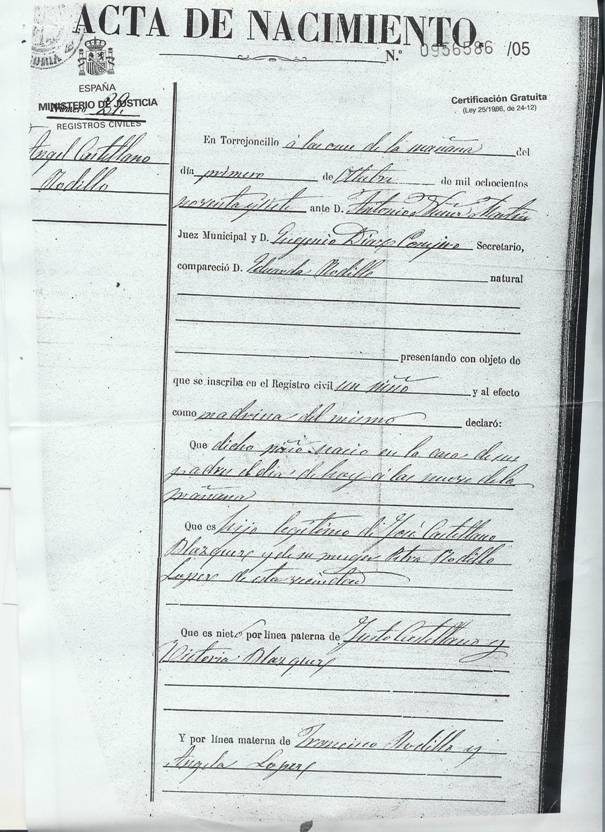 ACTA DE NACIMIENTO.
N.º 0956586 /05
ESPAÑA
MINISTERIO DE JUSTICIA
Número 29.
REGISTROS CIVILES
Certificación Gratuita
(Ley 25/1986, de 24-12)
Angel Castellano
Rodillo
En Torrejoncillo á las once de la mañana del
día primero de Octubre de mil ochocientos
noventa y siete ante D. Antonio Martin
Juez Municipal y D. Eugenio Diaz Secretario,
compareció D. Eduarda Rodillo natural
presentando con objeto de
que se inscriba en el Registro civil un niño y al efecto
como madrina del mismo declaró:
Que dicho niño nacio en la casa de sus
padres el dia de hoy á las nueve de la
mañana
Que es hijo legitimo de José Castellano
Blazquez y de su mujer Petra Rodillo
Lopez de esta vecindad
Que es nieto por línea paterna de Justo Castellano y
Victoria Blazquez
Y por línea materna de Francisco Rodillo y
Angela Lopez